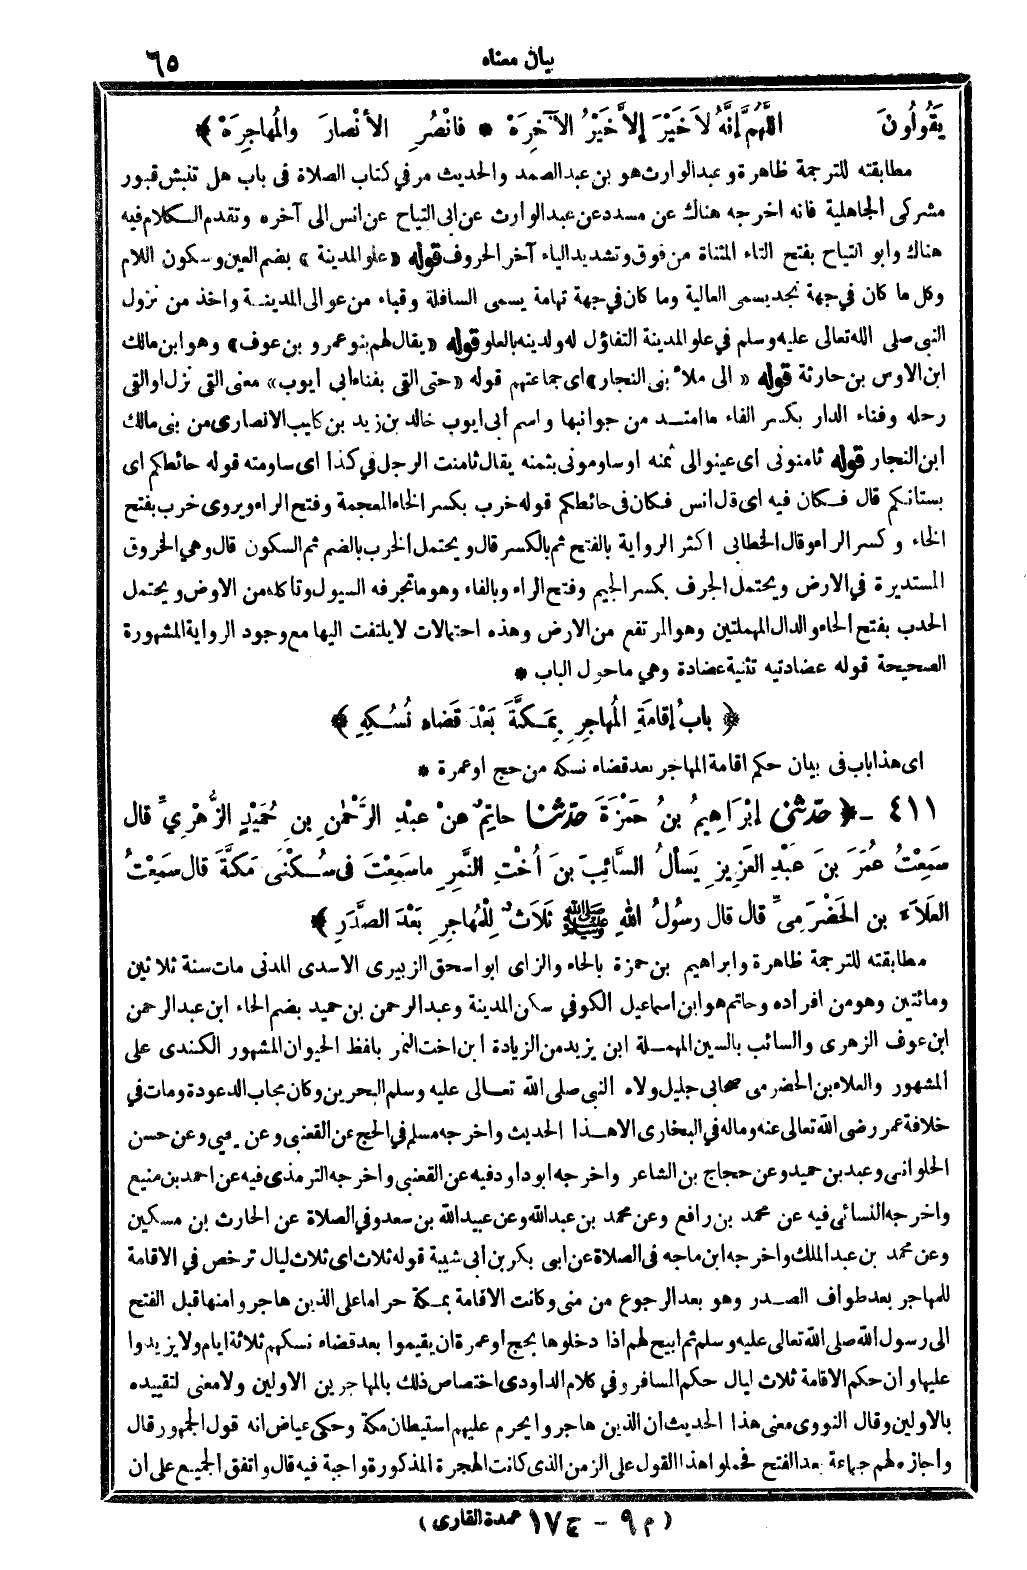 بيان معناه
٦٥
يَقُولُونَ اللَّهُمَّ إنَّهُ لاَ خَيْرَ إلاَّ خَيْرُ الآخِرَة * فانْصُرِ الأنْصارَ والمُهاجِرَهْ ﴾
مطابقته للترجمة ظاهرة وعبدالوارث هو بن عبدالصمد والحديث مر في كتاب الصلاة في باب هل تنبش قبور
مشركى الجاهلية فانه اخرجه هناك عن مسدد عن عبدالوارث عن ابى التياح عن انس الى آخره وتقدم الكلام فيه
هناك وابو التياح بفتح التاء المثناة من فوق وتشديد الياء آخر الحروف قوله «علو المدينة» بضم العين وسكون اللام
وكل ما كان في جهة نجد يسمى العالية وما كان في جهة تهامة يسمى السافلة وقباء من عوالى المدينة واخذ من نزول
النبى صلى الله تعالى عليه وسلم في علو المدينة التفاؤل له ولدينه بالعلو قوله «يقال لهم بنو عمرو بن عوف» وهو ابن مالك
ابن الاوس بن حارثة قوله «الى ملأ بنى النجار» اى جماعتهم قوله «حتى القى بفناء ابي ايوب» معنى القى نزل او القى
رحله وفناء الدار بكسر الفاء ما امتد من جوانبها واسم ابى ايوب خالد بن زيد بن كليب الانصارى من بنى مالك
ابن النجار قوله ثامنونى اى عينوا لى ثمنه او ساومونى بثمنه يقال ثامنت الرجل في كذا اى ساومته قوله حائطكم اى
بستانكم قال فكان فيه اى قال انس فكان فى حائطكم قوله خرب بكسر الخاء المعجمة وفتح الراء ويروى خرب بفتح
الخاء وكسر الراء وقال الخطابى اكثر الرواية بالفتح ثم بالكسر قال ويحتمل الخرب بالضم ثم السكون قال وهي الخروق
المستديرة في الارض ويحتمل الجرف بكسر الجيم وفتح الراء وبالفاء وهو ما تجرفه السيول وتأكله من الارض ويحتمل
الحدب بفتح الحاء والدال المهملتين وهو المرتفع من الارض وهذه احتمالات لا يلتفت اليها مع وجود الرواية المشهورة
الصحيحة قوله عضادتيه تثنية عضادة وهي ما حول الباب *
﴿ بابُ إقامَةِ المُهاجِرِ بِمَكَّةَ بَعْدَ قَضاءِ نُسُكِهِ ﴾
اى هذا باب فى بيان حكم اقامة المهاجر بعد قضاء نسكه من حج او عمرة *
٤١١ - ﴿ حدّثني إبْرَاهِيمُ بنُ حَمْزَةَ حدّثنا حاتِمٌ عنْ عبْدِ الرَّحْمٰنِ بنِ حُمَيْدٍ الزُّهْرِيِّ قال
سَمِعْتُ عُمَرَ بنَ عَبْدِ العَزِيزِ يَسألُ السَّائِبَ بنَ أُخْتِ النَّمِرِ ما سَمِعْتَ في سُكْنَى مَكَّةَ قال سَمِعْتُ
العَلاَءَ بنَ الحَضْرَمِيِّ قال قال رسُولُ اللهِ ﷺ ثَلاَثٌ لِلْمُهاجِرِ بَعْدَ الصَّدَرِ ﴾
مطابقته للترجمة ظاهرة وابراهيم بن حمزة بالحاء والزاى ابو اسحق الزبيرى الاسدى المدنى مات سنة ثلاثين
ومائتين وهو من افراده وحاتم هو ابن اسماعيل الكوفي سكن المدينة وعبدالرحمن بن حميد بضم الحاء ابن عبدالرحمن
ابن عوف الزهرى والسائب بالسين المهملة ابن يزيد من الزيادة ابن اخت النمر بلفظ الحيوان المشهور الكندى على
المشهور والعلاء بن الحضرمى صحابى جليل ولاه النبى صلى الله تعالى عليه وسلم البحرين وكان مجاب الدعوة ومات في
خلافة عمر رضى الله تعالى عنه وماله في البخارى الا هذا الحديث واخرجه مسلم في الحج عن القعنبى وعن يحيى وعن حسن
الحلوانى وعبد بن حميد وعن حجاج بن الشاعر واخرجه ابو داود فيه عن القعنبى واخرجه الترمذى فيه عن احمد بن منيع
واخرجه النسائى فيه عن محمد بن رافع وعن محمد بن عبدالله وعن عبيدالله بن سعد وفي الصلاة عن الحارث بن مسكين
وعن محمد بن عبدالملك واخرجه ابن ماجه في الصلاة عن ابى بكر بن ابى شيبة قوله ثلاث اى ثلاث ليال ترخص في الاقامة
للمهاجر بعد طواف الصدر وهو بعد الرجوع من منى وكانت الاقامة بمكة حراما على الذين هاجروا منها قبل الفتح
الى رسول الله صلى الله تعالى عليه وسلم ثم ابيح لهم اذا دخلوها بحج او عمرة ان يقيموا بعد قضاء نسكهم ثلاثة ايام ولا يزيدوا
عليها وان حكم الاقامة ثلاث ليال حكم المسافر وفي كلام الداودى اختصاص ذلك بالمهاجرين الاولين ولا معنى لتقييده
بالاولين وقال النووى معنى هذا الحديث ان الذين هاجروا يحرم عليهم استيطان مكة وحكى عياض انه قول الجمهور قال
واجازه لهم جماعة بعد الفتح فحملوا هذا القول على الزمن الذى كانت الهجرة المذكورة واجبة فيه قال واتفق الجميع على ان
( م ٩ - ج ١٧ عمدة القارى )